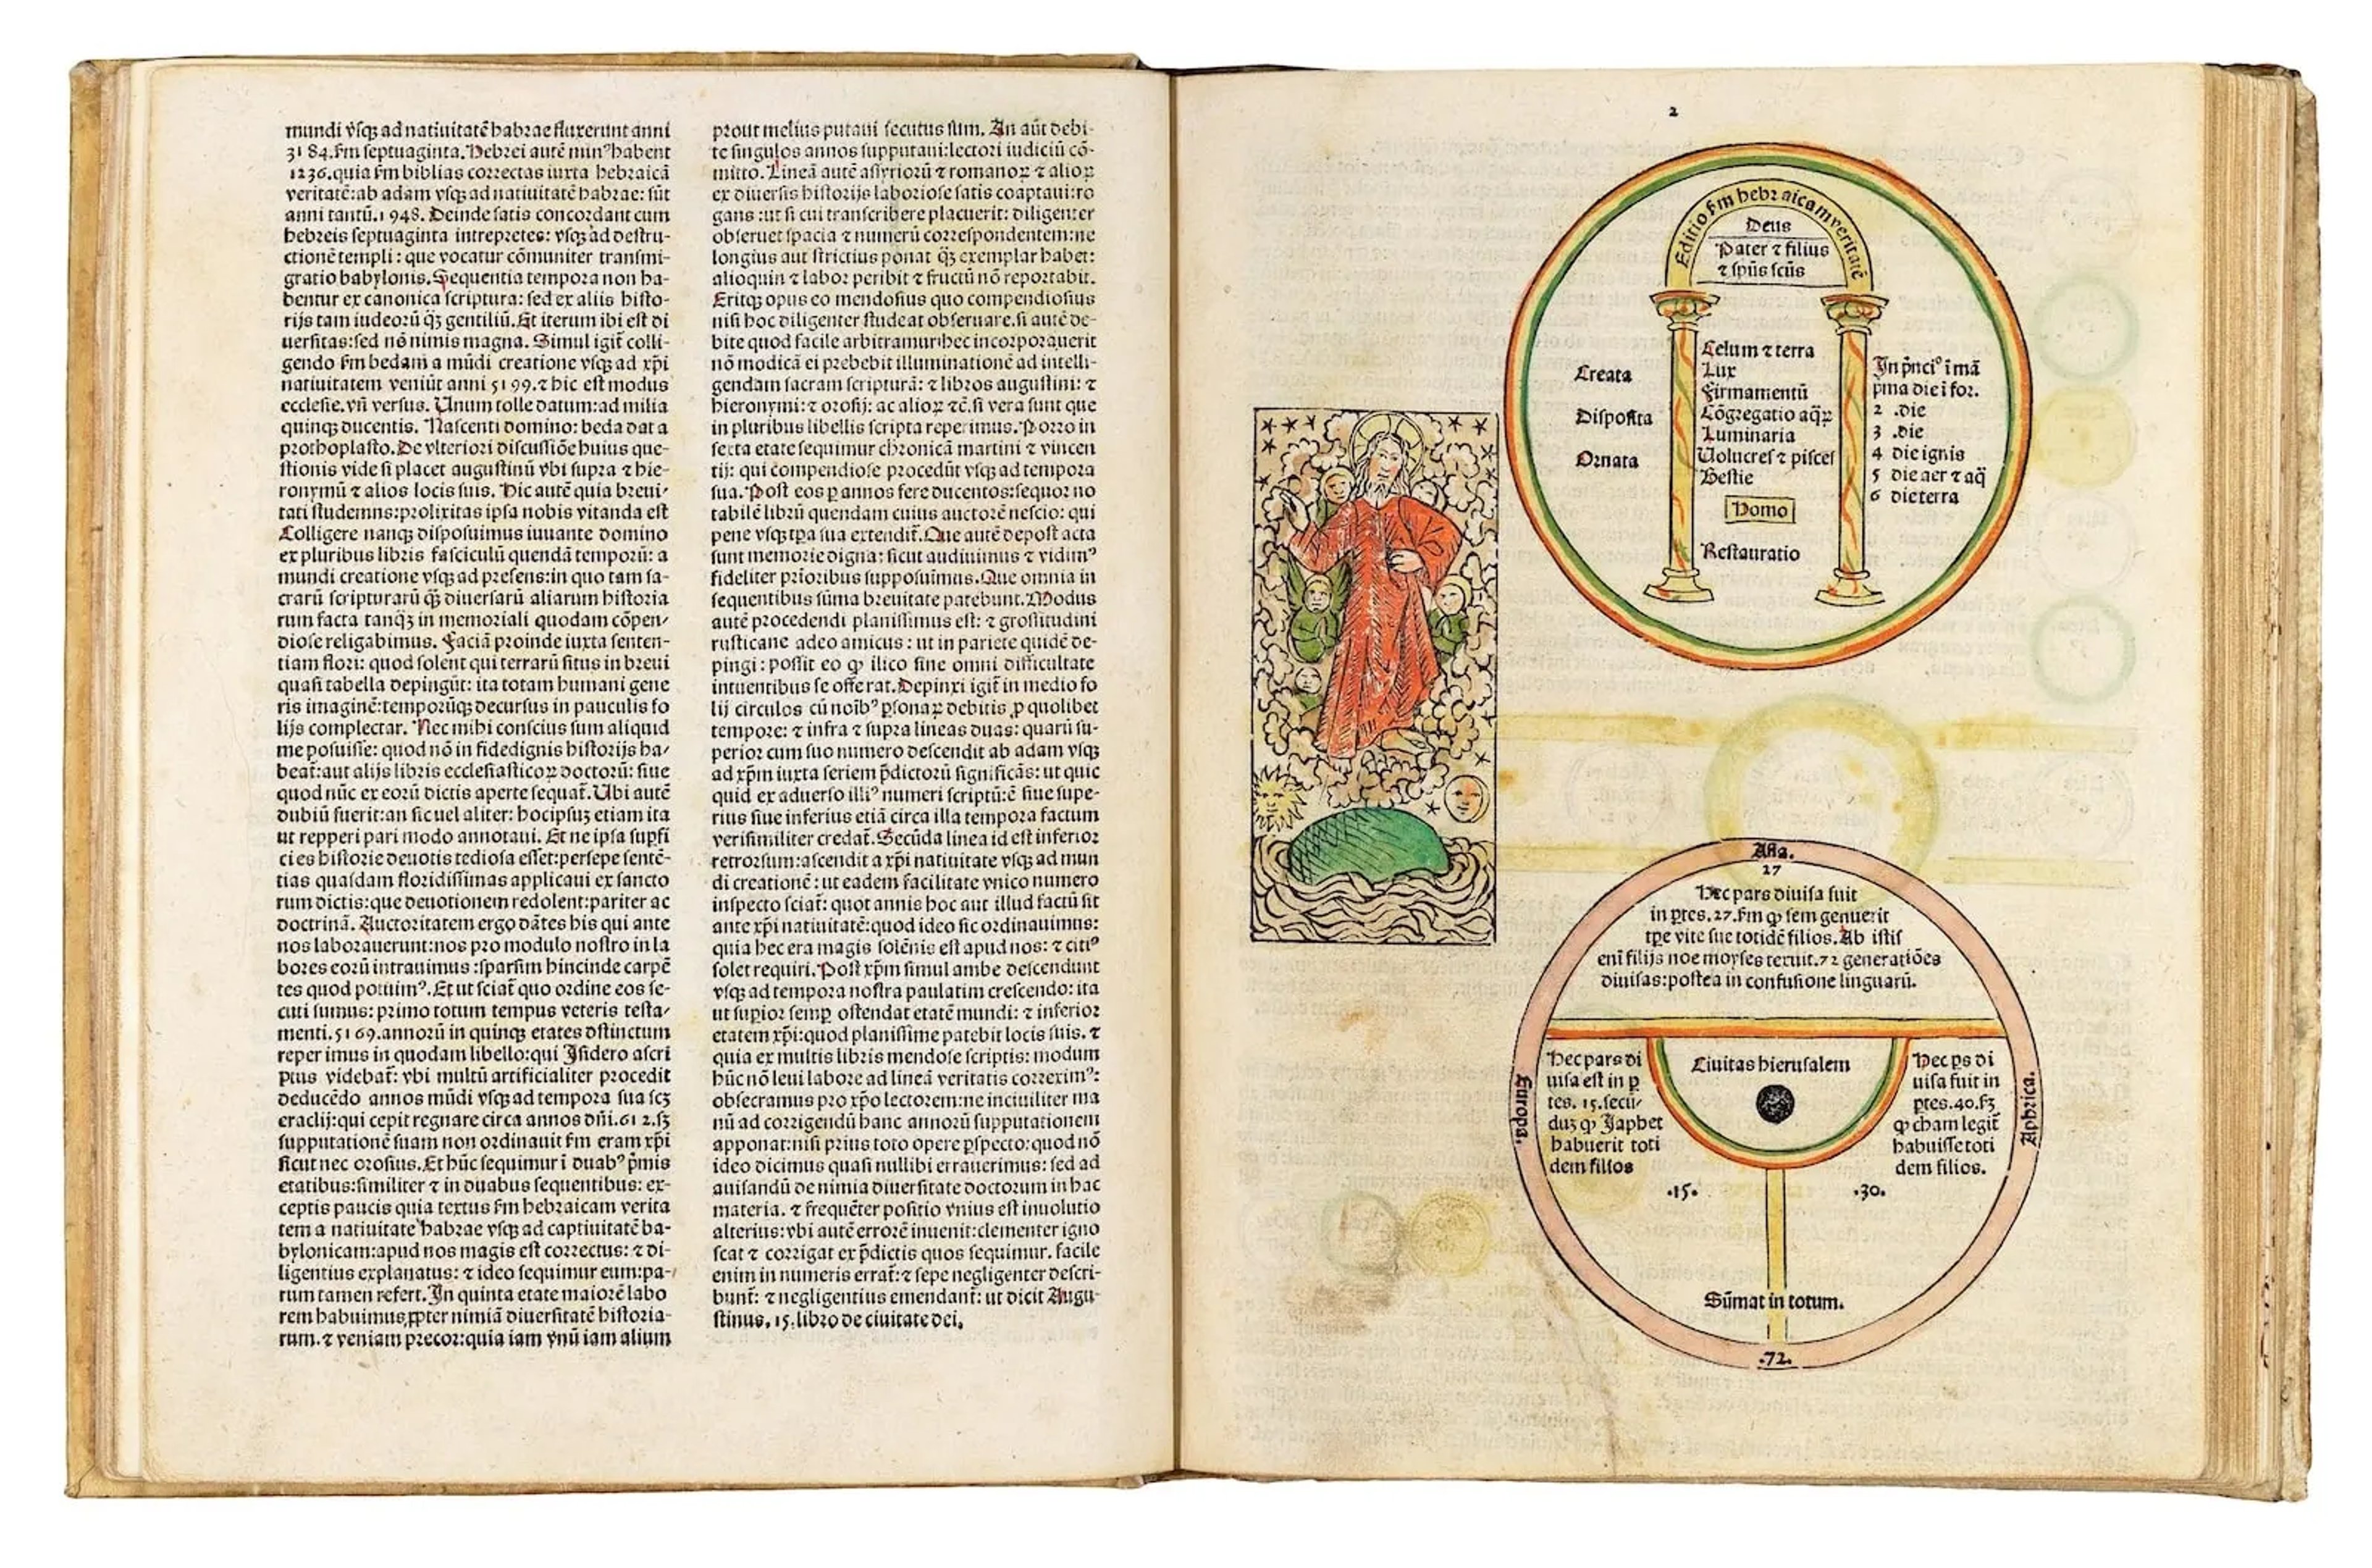 mundi vſqꝫ ad natiuitatē habrae fluxerunt anni
3184. ẜm ſeptuaginta. Hebrei autē minꝰ habent
1236. quia ẜm biblias correctas iuxta hebraicā
veritatē: ab adam vſqꝫ ad natiuitatē habrae: ſūt
anni tantū. 1948. Deinde ſatis concordant cum
hebreis ſeptuaginta intrepretes: vſqꝫ ad deſtru-
ctionē templi: que vocatur cōmuniter tranſmi-
gratio babylonis. Sequentia tempora non ha-
bentur ex canonica ſcriptura: ſed ex aliis hiſto-
rijs tam iudeorū qꝫ̄ gentiliū. Et iterum ibi eſt di
uerſitas: ſed nō nimis magna. Simul igit̄ colli-
gendo ẜm bedam a mūdi creatione vſqꝫ ad xp̄i
natiuitatem veniūt anni 5199. ⁊ hic eſt modus
eccleſie. vn̄ verſus. Unum tolle datum: ad milia
quinqꝫ ducentis. Naſcenti domino: beda dat a
prothoplaſto. De vlteriori diſcuſſiōe huius que-
ſtionis vide ſi placet auguſtinū vbi ſupra ⁊ hie-
ronymū ⁊ alios locis ſuis. Hic autē quia breui/
tati ſtudemns: prolixitas ipſa nobis vitanda eſt
Colligere nanqꝫ diſpoſuimus iuuante domino
ex pluribus libris faſciculū quendā temporū: a
mundi creatione vſqꝫ ad preſens: in quo tam ſa-
crarū ſcripturarū qꝫ̄ diuerſarū aliarum hiſtoria
rum facta tanqꝫ̄ in memoriali quodam cōpen/
dioſe religabimus. Faciā proinde iuxta ſenten-
tiam flori: quod ſolent qui terrarū ſitus in breui
quaſi tabella depingūt: ita totam humani gene
ris imaginē: temporūqꝫ decurſus in pauculis fo
lijs complectar. Nec mihi conſcius ſum aliquid
me poſuiſſe: quod nō in fidedignis hiſtorijs ha/
beat̄: aut alijs libris eccleſiaſticoꝝ doctorū: ſiue
quod nūc ex eorū dictis aperte ſequat̄. Ubi autē
dubiū fuerit: an ſic uel aliter: hocipſuꝫ etiam ita
ut repperi pari modo annotaui. Et ne ipſa ſupẜi
cies hiſtorie deuotis tedioſa eſſet: perſepe ſentē-
tias quaſdam floridiſſimas applicaui ex ſancto
rum dictis: que deuotionem redolent: pariter ac
doctrinā. Auctoritatem ergo dātes his qui ante
nos laborauerunt: nos pro modulo noſtro in la
bores eorū intrauimus: ſparſim hincinde carpē
tes quod potuimꝰ. Et ut ſciat̄ quo ordine eos ſe-
cuti ſumus: primo totum tempus veteris teſta/
menti. 5169. annorū in quinqꝫ etates dſtinctum
reperimus in quodam libello: qui Iſidero aſcri
ptus videbat̄: vbi multū artificialiter procedit
deducēdo annos mūdi vſqꝫ ad tempora ſua ſcꝫ
eraclij: qui cepit regnare circa annos dn̄i. 612. ſꝫ
ſupputationē ſuam non ordinauit ẜm eram xp̄i
ſicut nec oroſius. Et hūc ſequimur ī duabꝰ p̄mis
etatibus: ſimiliter ⁊ in duabus ſequentibus: ex-
ceptis paucis quia textus ẜm hebraicam verita
tem a natiuitate habrae vſqꝫ ad captiuitatē ba-
bylonicam: apud nos magis eſt correctus: ⁊ di-
ligentius explanatus: ⁊ ideo ſequimur eum: pa-
rum tamen refert. In quinta etate maiorē labo
rem habuimus ꝓpter nimiā diuerſitatē hiſtoria-
rum. ⁊ veniam precor: quia iam vnū iam alium
prout melius putaui ſecutus ſum. An aūt debi-
te ſingulos annos ſupputaui: lectori iudiciū cō-
mitto. Lineā autē aſſyriorū ⁊ romanoꝝ ⁊ alioꝝ
ex diuerſis hiſtorijs laborioſe ſatis coaptaui: ro
gans: ut ſi cui tranſcribere placuerit: diligenter
obſeruet ſpacia ⁊ numerū correſpondentem: ne
longius aut ſtrictius ponat qꝫ̄ exemplar habet:
alioquin ⁊ labor peribit ⁊ fructū nō reportabit.
Eritqꝫ opus eo mendoſius quo compendioſius
niſi hoc diligenter ſtudeat obſeruare. ſi autē de-
bite quod facile arbitramur: hec incorporauerit
nō modicā ei prebebit illuminationē ad intelli-
gendam ſacram ſcripturā: ⁊ libros auguſtini: ⁊
hieronymi: ⁊ oroſij: ac alioꝝ ⁊ē. ſi vera ſunt que
in pluribus libellis ſcripta reperimus. Porro in
ſexta etate ſequimur chronicā martini ⁊ vincen
tij: qui compendioſe procedūt vſqꝫ ad tempora
ſua. Poſt eos ꝑ annos fere ducentos: ſequor no
tabilē librū quendam cuius auctorē neſcio: qui
pene vſqꝫ tꝑa ſua extendit̄. Que autē depoſt acta
ſunt memorie digna: ſicut audiuimus ⁊ vidimꝰ
fideliter prīoribus ſuppoſuimus. Que omnia in
ſequentibus ſūma breuitate patebunt. Modus
autē procedendi planiſſimus eſt: ⁊ groſſitudini
ruſticane adeo amicus: ut in pariete quidē de-
pingi: poſſit eo ꝙ ilico ſine omni difficultate
intuentibus ſe offerat. Depinxi igit̄ in medio fo
lij circulos cū noībꝰ ꝑſonaꝝ debitis ꝓ quolibet
tempore: ⁊ infra ⁊ ſupra lineas duas: quarū ſu-
perior cum ſuo numero deſcendit ab adam vſqꝫ
ad xp̄m iuxta ſeriem p̄dictorū ſignificās: ut quic
quid ex aduerſo illiꝰ numeri ſcriptū: ē ſiue ſupe-
rius ſiue inferius etiā circa illa tempora factum
veriſimiliter credat̄. Secūda linea id eſt inferior
retrorſum: aſcendit a xp̄i natiuitate vſqꝫ ad mun
di creationē: ut eadem facilitate vnico numero
inſpecto ſciat̄: quot annis hoc aut illud factū ſit
ante xp̄i natiuitatē: quod ideo ſic ordinauimus:
quia hec era magis ſolēnis eſt apud nos: ⁊ citiꝰ
ſolet requiri. Poſt xp̄m ſimul ambe deſcendunt
vſqꝫ ad tempora noſtra paulatim creſcendo: ita
ut ſuꝑior ſemꝑ oſtendat etatē mundi: ⁊ inferior
etatem xp̄i: quod planiſſime patebit locis ſuis. ⁊
quia ex multis libris mendoſe ſcriptis: modum
hūc nō leui labore ad lineā veritatis correximꝰ:
obſecramus pro xp̄o lectorem: ne inciuiliter ma
nū ad corrigendū hanc annorū ſupputationem
apponat: niſi prius toto opere ꝑſpecto: quod nō
ideo dicimus quaſi nullibi errauerimus: ſed ad
auiſandū de nimia diuerſitate doctorum in hac
materia. ⁊ frequēter poſitio vnius eſt inuolutio
alterius: vbi autē errorē inuenit: clementer igno
ſcat ⁊ corrigat ex p̄dictis quos ſequimur. facile
enim in numeris errat̄: ⁊ ſepe negligenter deſcri-
bunt̄: ⁊ negligentius emendant̄: ut dicit Augu-
ſtinus. 15. libro de ciuitate dei.
2
Editio ẜm hebraicam veritatē
Deus
Pater ⁊ filius
⁊ ſpūs ſcūs
Creata
Diſpoſita
Ornata
Celum ⁊ terra
Lux
Firmamentū
Cōgregatio aqꝝ̄
Luminaria
Uolucreſ ⁊ piſceſ
Beſtie
Homo
Reſtauratio
In p̄nciº ī mā
pma die i for.
2 .die
3 .die
4 die ignis
5 die aer ⁊ aq̄
6 die terra
Aſia.
27
Hec pars diuiſa fuit
in ꝑtes. 27. ẜm ꝙ ſem genuerit
tꝑe vite ſue totidē filios. Ab iſtiſ
enī filijs noe moyſes texuit. 72 generatiōes
diuiſas: poſtea in confuſione linguarū.
Europa.
Hec pars di
uiſa eſt in ꝑ
tes. 15. ſecū/
duꝫ ꝙ Japhet
habuerit toti
dem filios
.15.
Ciuitas hieruſalem
Hec ꝑs di
uiſa fuit in
ꝑtes. 40. ſꝫ
ꝙ cham legit̄
habuiſſe toti
dem filios.
.30.
Aphrica.
Sūmat in totum.
.72.